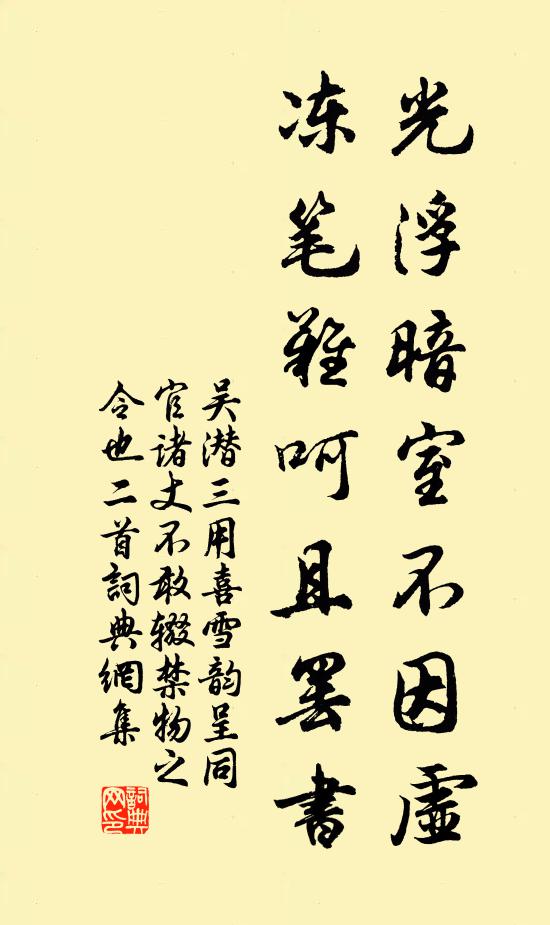 光浮暗室不因虚
冻笔难呵且罢书
吴潜三用喜雪韵呈同
官诸丈不敢辍禁物之
令也二首詞典網集
詞典
网印